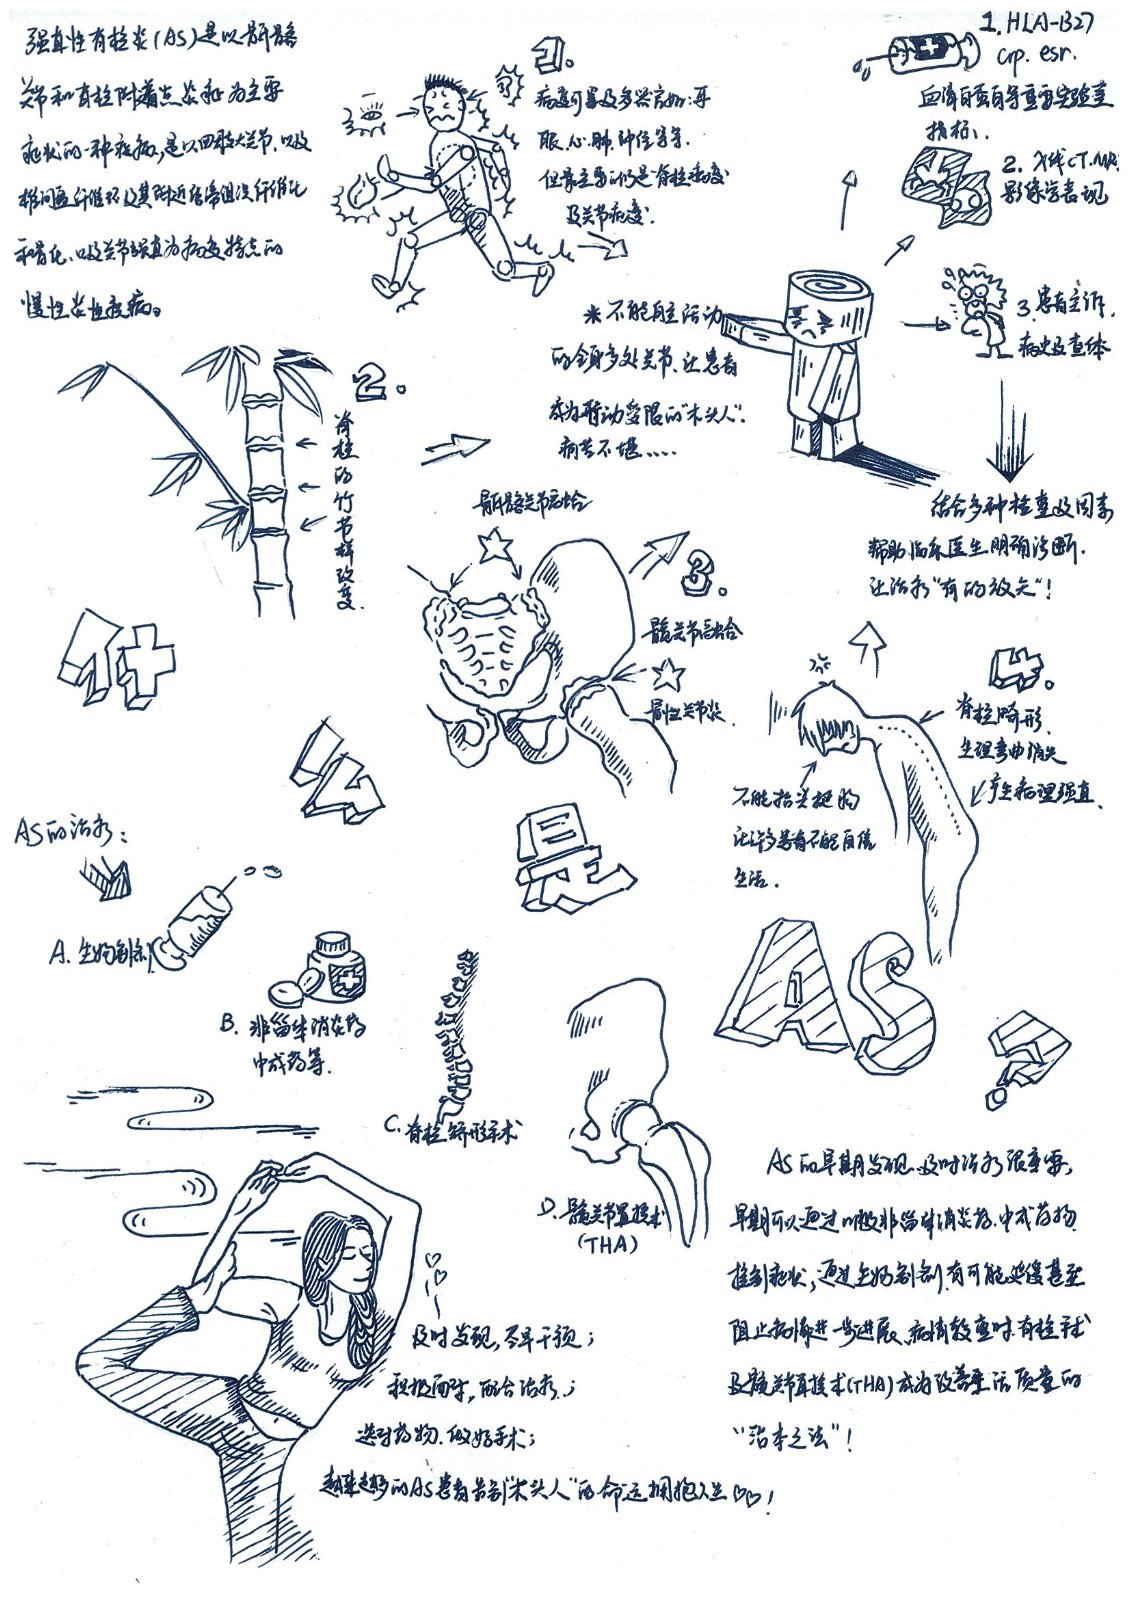 强直性脊柱炎(AS)是以骶髂
关节和脊柱附着点炎症为主要
症状的一种疾病,是以四肢大关节、以及
椎间盘纤维环及其附近结缔组织纤维化
和骨化、以及关节强直为病变特点的
慢性炎性疾病。
1.
病变可累及多类脏器:耳
眼、心、肺、神经等等.
但最主要的仍是脊柱病变
及关节病变.
1. HLA-B27
crp. esr.
血清白蛋白等重要实验室
指标、
2. X线CT.MR
影像学表现
3. 患者主诉、
病史及查体
结合多种检查及因素
帮助临床医生明确诊断.
让治疗"有的放矢"!
*不能自主活动
的颈部多处关节、让患者
成为活动受限的"木头人".
痛苦不堪....
2.
脊柱的竹节样改变.
骶髂关节融合
3.
髋关节融合
骨性关节炎.
4.
脊柱畸形.
生理弯曲消失
产生病理强直.
不能抬头挺胸
让许多患者不能自信
生活.
什
么
是
AS
?
AS的治疗:
A. 生物制剂
B. 非甾体消炎药
中成药等.
C. 脊柱矫形手术
D. 髋关节置换术
(THA)
AS的早期发现、及时治疗很重要,
早期可以通过口服非甾体消炎药、中成药物
控制症状,通过生物制剂有可能延缓甚至
阻止病情进一步进展、病情较重时脊柱手术
及髋关节置换术(THA)成为改善生活质量的
"治本之法"!
及时发现,尽早干预;
积极面对,配合治疗;
选对药物、做好手术;
越来越多的AS患者告别"木头人"的命运拥抱人生!